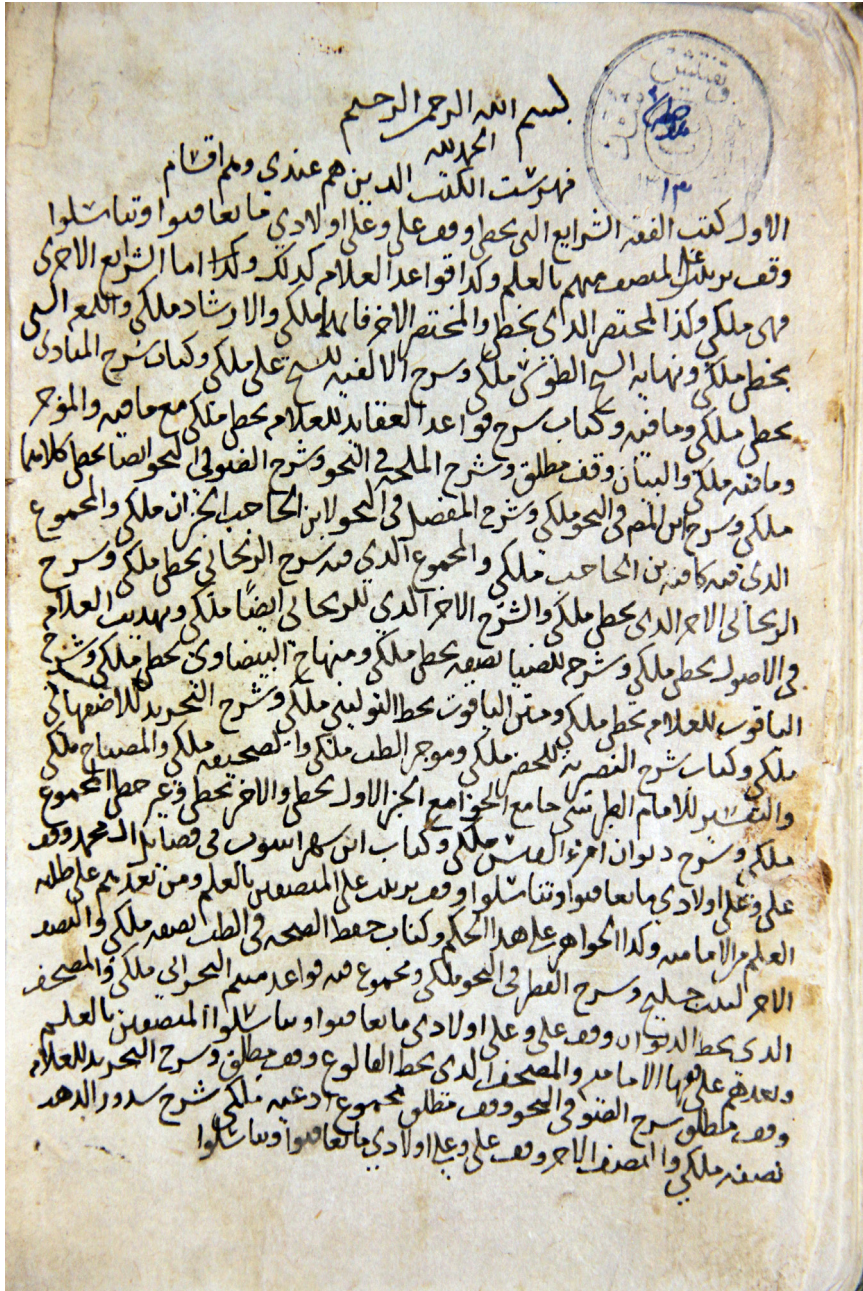 بسم الله الرحمن الرحيم
الحمد لله
فهرست الكتب الدين هم عندي وهم اقسام
الاول كتب الفقه الشرايع التي بخطي وقف علي وعلى اولادي ما تعاقبوا وتناسلوا
وقف على المتصف منهم بالعلم وكدا قواعد العلامه كدلك وكدا اما الشرايع الاخرى
فهي ملكي وكذا المختصر الذي بخطي والمختصر الاخر ملكي والارشاد ملكي واللمعه التي
بخطي ملكي ونهايه الشيخ الطوسي ملكي وشرح الالفيه للشيخ علي ملكي وكتاب شرح المبادي
بخطي ملكي وما فيه وكتاب شرح قواعد العقايد للعلامه بخطي ملكي مع ما فيه والموجز
وما فيه ملكي والبيان وقف مطلق وشرح الملحه في النحو وشرح في النحو ايضا بخطي كلاهما
ملكي وشرح ابن في النحو ملكي وشرح المفصل في النحو لابن الحاجب ملكي والمجموع
الذي فيه كافيه بن الحاجب ملكي والمجموع الذي فيه شرح الزنجاني بخطي ملكي وشرح
الزنجاني الاخر الذي بخطي ملكي والشرح الاخر الذي للزنجاني ايضًا ملكي وتهذيب العلامه
في الاصول بخطي ملكي وشرح للضيا نصفه بخطي ملكي ومنهاج البيضاوي بخطي ملكي وشرح
الياقوت للعلامه بخطي ملكي ومتن الياقوت بخط ملكي وشرح التجريد للاصفهاني
ملكي وكتاب شرح النصيريه ملكي وموجز الطب ملكي والصحيفه ملكي والمصباح ملكي
والتفسير للامام الطبرسي جامع الجوامع الجز الاول بخطي والاخر بخطي وغير خطي المجموع
ملكي وشرح ديوان امرء القيس ملكي وكتاب ابن شهراسوب في فضايل ال محمد وقف
علي وعلى اولادي ما تعاقبوا وتناسلوا وقف على المتصفين بالعلم ومن بعدهم على طلبه
العلم من الاماميه وكذا الجواهر على هدا الحكم وكتاب حفظ الصحه في الطب نصفه ملكي والنصف
الاخر وشرح القطر في النحو ملكي ومجموع فيه قواعد ميثم البحراني ملكي والمصحف
الذي بخط وقف علي وعلى اولادي ما تعاقبوا وتناسلوا المتصفين بالعلم
وبعدهم على فقها الاماميه والمصحف الذي بخط وقف مطلق وشرح التجريد للعلامه
وقف مطلق شرح في النحو وقف مطلق مجموع ادعيه ملكي شرح سدور الدهب
نصفه ملكي والنصف الاخر وقف علي وعلى اولادي ما تعاقبوا وتناسلوا